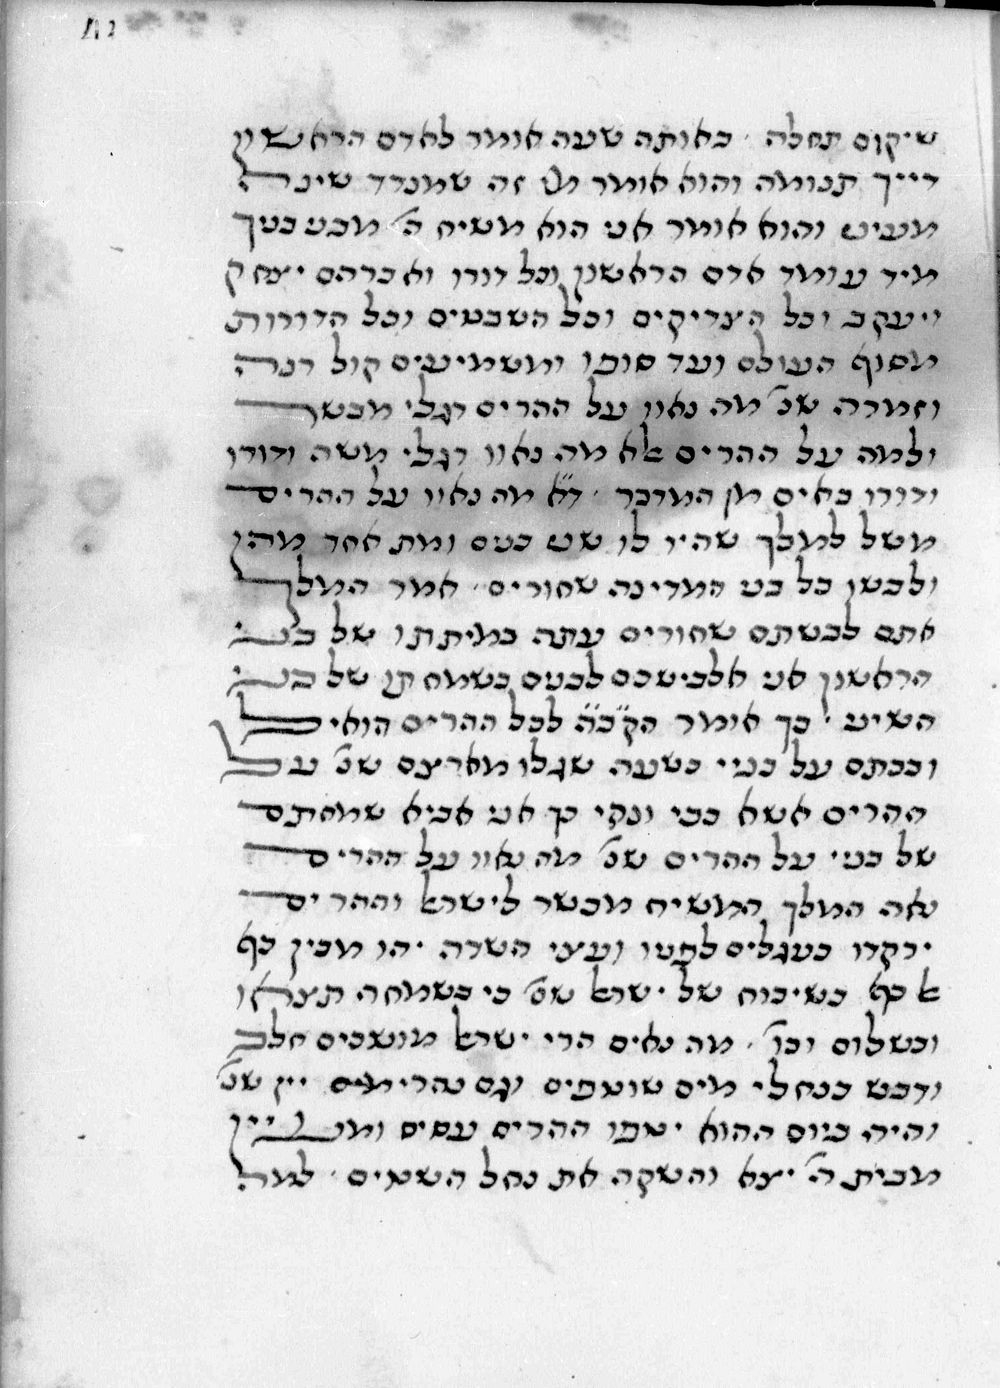 שיקום תחלה · באותה שעה אומר לאדם הראשון
דייך תנומה והוא אומר מי זה שמנדד שינה
מעיני והוא אומר אני הוא משיח ה' מבני בניך
מיד עומד אדם הראשון וכל דורו ואברהם יצחק
ויעקב וכל הצדיקים וכל השבטים וכל הדורות
מסוף העולם ועד סופו ומשמיעים קול רנה
וזמרה שנ' מה נאוו על ההרים רגלי מבשר
ולמה על ההרים אלא מה נאוו רגלי משה ודורו
ודורו באים מן המדבר · ד"א מה נאוו על ההרים
משל למלך שהיו לו שני בנים ומת אחד מהן
ולבשו כל בני המדינה שחורים · אמר המלך
אתם לבשתם שחורים עתה במיתתו של בני
הראשון אני אלבישכם לבנים בשמחתו של בני
השיני · כך אומר הק"בה לכל ההרים הואיל
ובכתם על בניי בשעה שגלו מארצם שנ' על
ההרים אשא בכי ונהי כך אני אביא שמחתם
של בניי על ההרים שנ' מה נאוו על ההרים
נאה המלך המשיח מבשר לישראל וההרים
ירקדו כעגלים לפניו ועצי השדה יהו מכין כף
אל כף בשיבוח של ישראל שנ' כי בשמחה תצאו
ובשלום וכו' · מה נאים הרי ישראל מושכים חלב
ודבש כנחלי מים שוטפים וגם נהרי מים יין שנ'
והיה ביום ההוא יטפו ההרים עסים ומעיין
מבית ה' יצא והשקה את נחל השטים · למה